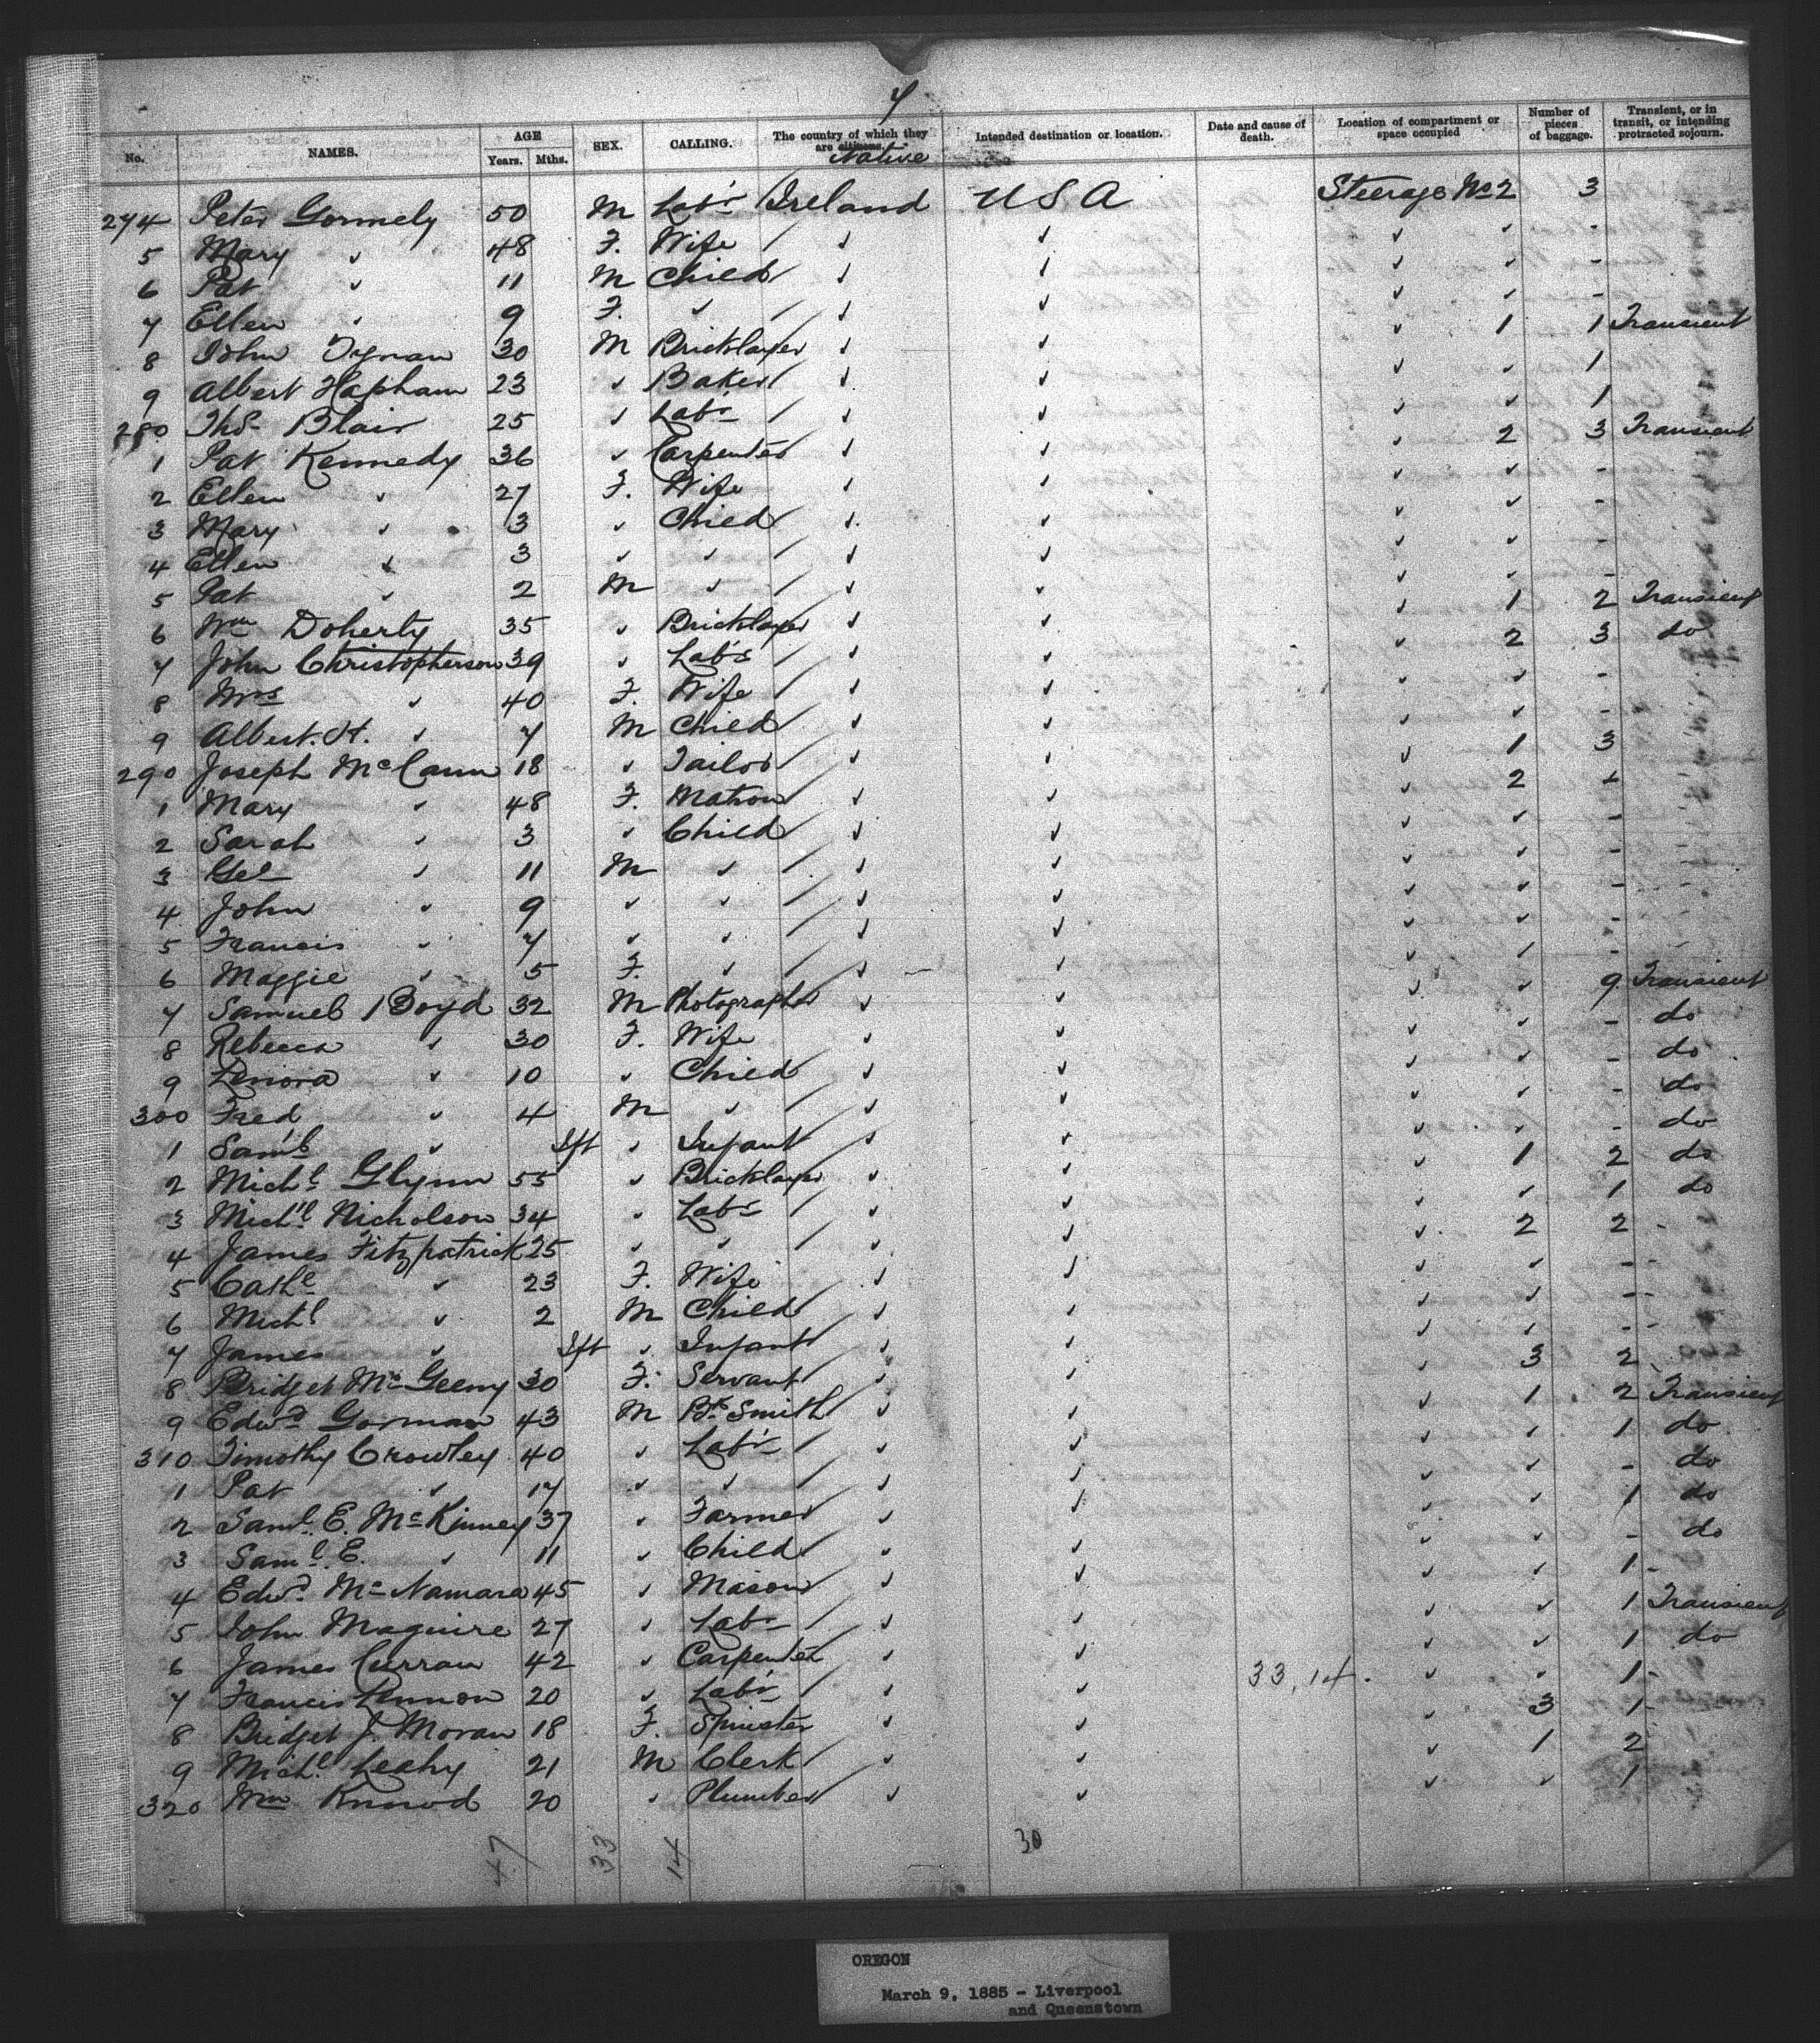 7
No. NAMES. AGE Years. Mths. SEX. CALLING. The country of which they are citizens. Native Intended destination or location. Date and cause of death. Location of compartment or space occupied Number of pieces of baggage. Transient, or in transit, or intending protracted sojourn.
274 Peter Gormely 50 M Labr Ireland USA Steerage No 2 3
5 Mary " 48 F. Wife " " " " -
6 Pat " 11 M Child " " " " -
7 Ellen " 9 F. " " " " " -
8 John Tynan 30 M Bricklayer " " " 1 1 Transient
9 Albert Hapham 23 " Baker " " " " 1
280 Thos Blair 25 " Labr " " " " 1
1 Pat Kennedy 36 " Carpenter " " " 2 3 Transient
2 Ellen " 27 F. Wife " " " " -
3 Mary " 3 " Child " " " " -
4 Ellen " 3 " " " " " " -
5 Pat " 2 M " " " " " -
6 Wm Doherty 35 " Bricklayer " " " 1 2 Transient
7 John Christopherson 39 " Labr " " " 2 3 do
8 Mrs " 40 F. Wife " " " " -
9 Albert. H. " 7 M Child " " " " -
290 Joseph McCann 18 " Tailor " " " 1 3
1 Mary " 48 F. Matron " " " 2
2 Sarah " 3 " Child " " " " -
3 Geo " 11 M " " " " " -
4 John " 9 " " " " " " -
5 Francis " 7 " " " " " " -
6 Maggie " 5 F. " " " " " -
7 Samuel Boyd 32 M Photographer " " " " 9 Transient
8 Rebecca " 30 F. Wife " " " " - do
9 Lenora " 10 " Child " " " " - do
300 Fred " 4 M " " " " " - do
1 Saml " Ift " Infant " " " " - do
2 Michl Glynn 55 " Bricklayer " " " 1 2 do
3 Michl Nicholson 34 " Labr " " " " 1 do
4 James Fitzpatrick 25 " " " " " 2 2 -
5 Cathe " 23 F. Wife " " " " - -
6 Michl " 2 M Child " " " " - -
7 James " Ift " Infant " " " " - -
8 Bridget McGeeny 30 F. Servant " " " 3 2
9 Edwd Gorman 43 M Bk Smith " " " 1 2 Transient
310 Timothy Crowley 40 " Labr " " " " 1 do
1 Pat " 17 " " " " " " - do
2 Saml. E. McKinney 37 " Farmer " " " " 1 do
3 Saml. E. " 11 " Child " " " " - do
4 Edwd McNamara 45 " Mason " " " " 1 -
5 John Maguire 27 " Labr " " " " 1 Transient
6 James Curran 42 " Carpenter " " " " 1 do
7 Francis Lennon 20 " Labr " " 33, 14. " " 1 -
8 Bridget J. Moran 18 F. Spinster " " " 3 1 -
9 Michl Leahy 21 M Clerk " " " 1 2
320 Wm Knnod 20 " Plumber " " " " 1
47 33 14 30
OREGON
March 9, 1885 - Liverpool
and Queenstown